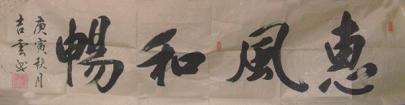 惠風和暢
庚寅秋月
吉雲書